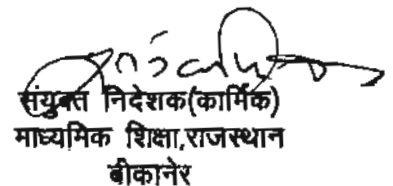 संयुक्त निदेशक(कार्मिक)
माध्यमिक शिक्षा,राजस्थान
बीकानेर